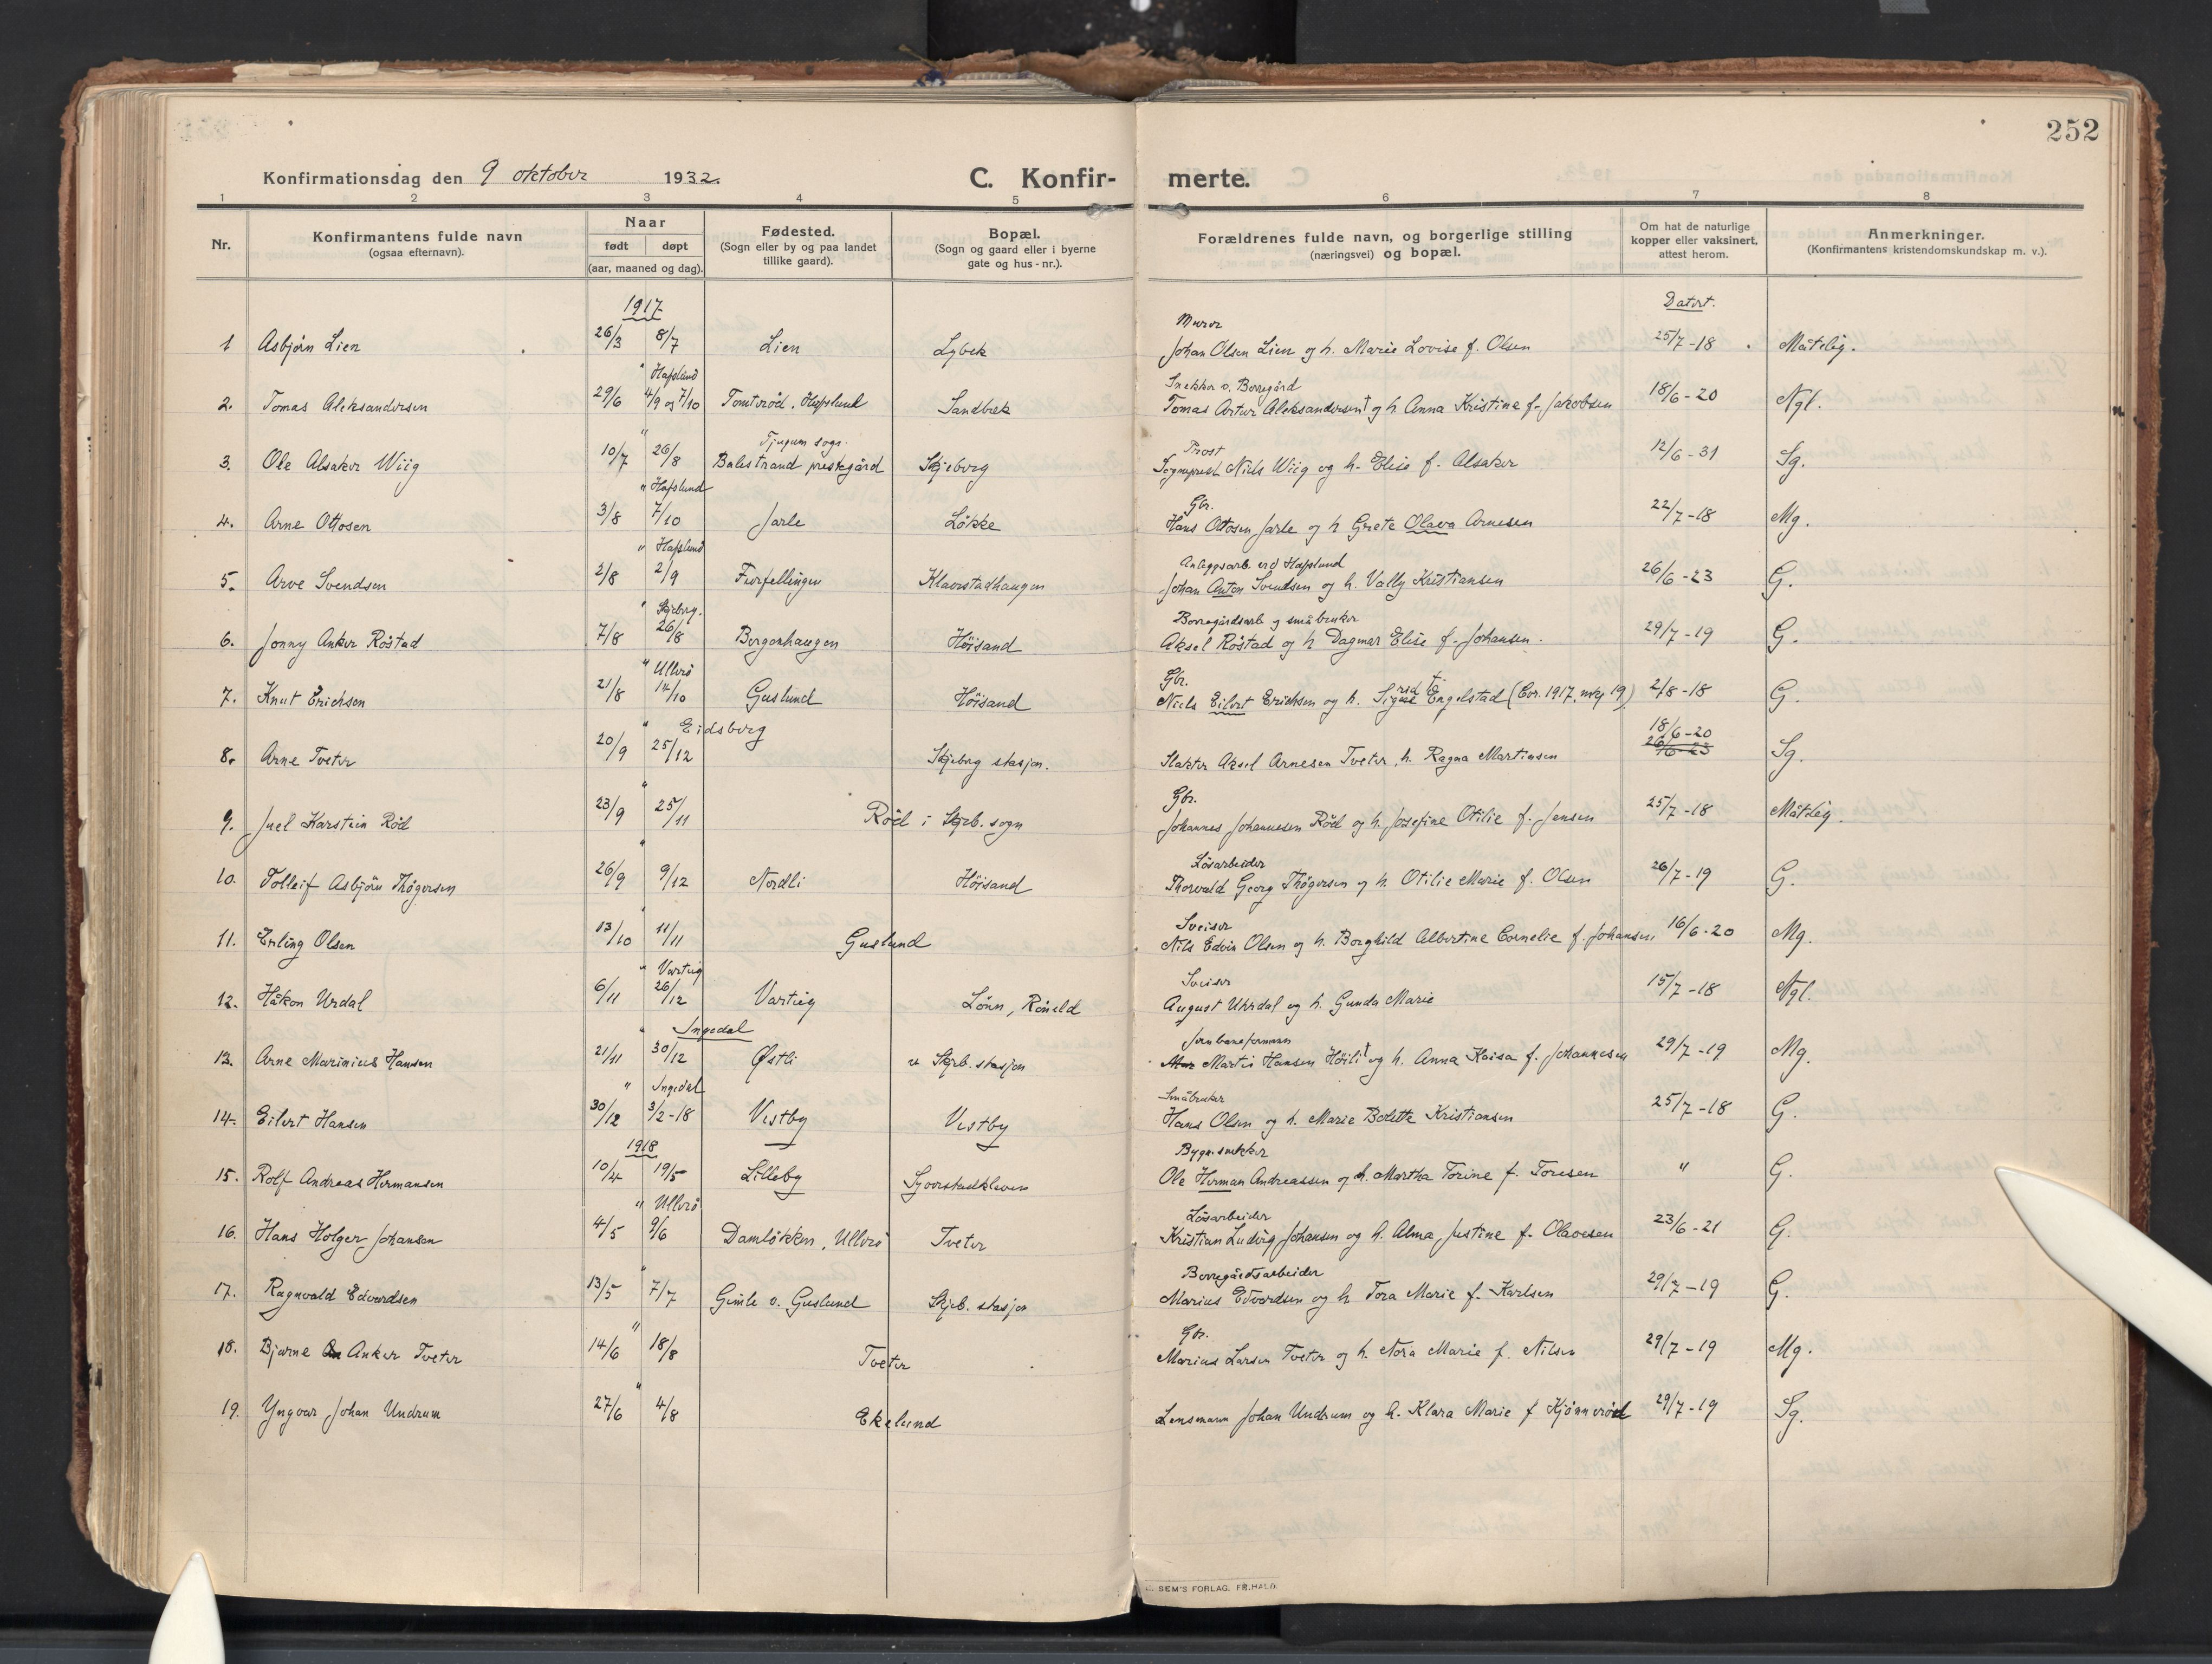 252
Konfirmationsdag den 9 oktober 1932. C. Konfir- merte.
1 2 3 4 5 6 7 8
Nr. Konfirmantens fulde navn (ogsaa efternavn). Naar født døpt (aar, maaned og dag). Fødested. (Sogn eller by og paa landet tillike gaard). Bopæl. (Sogn og gaard eller i byerne gate og hus-nr.). Forældrenes fulde navn, og borgerlige stilling (næringsvei) og bopæl. Om hat de naturlige kopper eller vaksinert, attest herom. Anmerkninger. (Konfirmantens kristendomskundskap m. v.).
1917 Datert.
Murer
1 Asbjörn Lien 26/3 8/7 Lien Lybek Johan Olsen Lien og h. Marie Lovise f. Olsen 25/7-18 Måtelig.
" Hafslund Snekker v. Borregård
2. Tomas Aleksandersen 29/6 4/9 og 7/10 Tomterød, Hafslund Sandbæk Tomas Artur Aleksandersen† og h. Anna Kristine f. Jakobsen 18/6-20 Ngl.
" Tjugum sogn. Prost
3. Ole Alsaker Wiig 10/7 26/8 Balestrand prestegård Skjeberg Sogneprest Niels Wiig og h. Elise f. Alsaker 12/6-31 Sg.
" Hafslund Gbr.
4. Arne Ottosen 3/8 7/10 Jarle Løkke Hans Ottosen Jarle og h Grete Olava Arnesen 22/7-18 Mg.
" Hafslund Anleggsarb. ved Hafslund
5. Arve Svendsen 2/8 2/9 Furfellingen Klavestadhaugen Johan Anton Svendsen og h. Vally Kristiansen 26/6-23 G.
" Skjeberg. Borregårdsarb og småbruker
6. Jonny Anker Röstad 7/8 26/8 Borgenhaugen Höisand Aksel Röstad og h Dagmar Elise f. Johansen. 29/7-19 G.
" Ullerö Gbr.
7. Knut Erichsen 21/8 14/10 Guslund Höisand Niels Eilert Erichsen og h. Sigrid Engelstad (Cor. 1917. mrg 19) 2/8-18 G.
" Eidsberg 18/6-20
8. Arne Tveter 20/9 25/12 Skjeberg stasjon. Slakter Aksel Arnesen Tveter, h. Ragna Martinsen 26/6-23 Sg.
" Gbr.
9. Juel Karstein Röd 23/9 25/11 Röd i Skjeb. sogn Johannes Johannesen Röd og h. Josefine Otilie f. Jensen 25/7-18 Måtelig.
" Lösarbeider
10. Tolleif Asbjörn Thögersen 26/9 9/12 Nordli Höisand Thorvald Georg Thögersen og h. Otilie Marie f. Olsen 26/7-19 G.
" Sveiser
11. Erling Olsen 13/10 11/11 Guslund Nils Edvin Olsen og h. Borghild Albertine Cornelie f. Johansen. 16/6-20 Mg.
" Varteig Sveiser
12. Håkon Urdal 6/11 26/12 Varteig Lönn, Röneld August Uhrdal og h. Gunda Marie 15/7-18 Ngl.
" Ingedal Jernbaneformann
13. Arne Marinius Hansen 21/11 30/12 Østli v Skjeb. stasjon Martin Hansen Höili† og h. Anna Kaisa f. Johannesen 29/7-19 Mg.
" Ingedal Småbruker
14. Eilert Hansen 30/12 3/2-18 Vestby Vestby Hans Olsen og h. Marie Bolette Kristiansen 25/7-18 G.
1918 Bygn.snekker
15. Rolf Andreas Hermansen 10/4 19/5 Lilleby Syverstadkleven Ole Herman Andreassen og h. Martha Torine f. Toresen " G.
" Ullerö Lösarbeider
16. Hans Holger Johansen 4/5 9/6 Damlökken, Ullerö Tveter Kristian Ludvig Johansen og h. Alma Justine f. Olavesen 23/6-21 G.
" Borregårdsarbeider
17. Ragnvald Edvardsen 13/5 7/7 Gimle v. Guslund Skjeb. stasjon Marius Edvardsen og h Tora Marie f. Karlsen 29/7-19 G.
" Gbr.
18. Bjarne Anker Tveter 14/6 18/8 Tveter Marius Larsen Tveter og h. Nora Marie f. Nilsen 29/7-19 Mg.
"
19. Yngvar Johan Undrum 27/6 4/8 Ekelund Lensmann Johan Undrum og h. Klara Marie f Kjönneröd 29/7-19 Sg.
SEM'S FORLAG. FR.HALD.